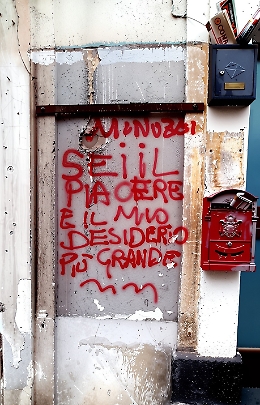 MINOZZI
SEI IL
PIACERE
E IL MIO
DESIDERIO
PIÙ GRANDE